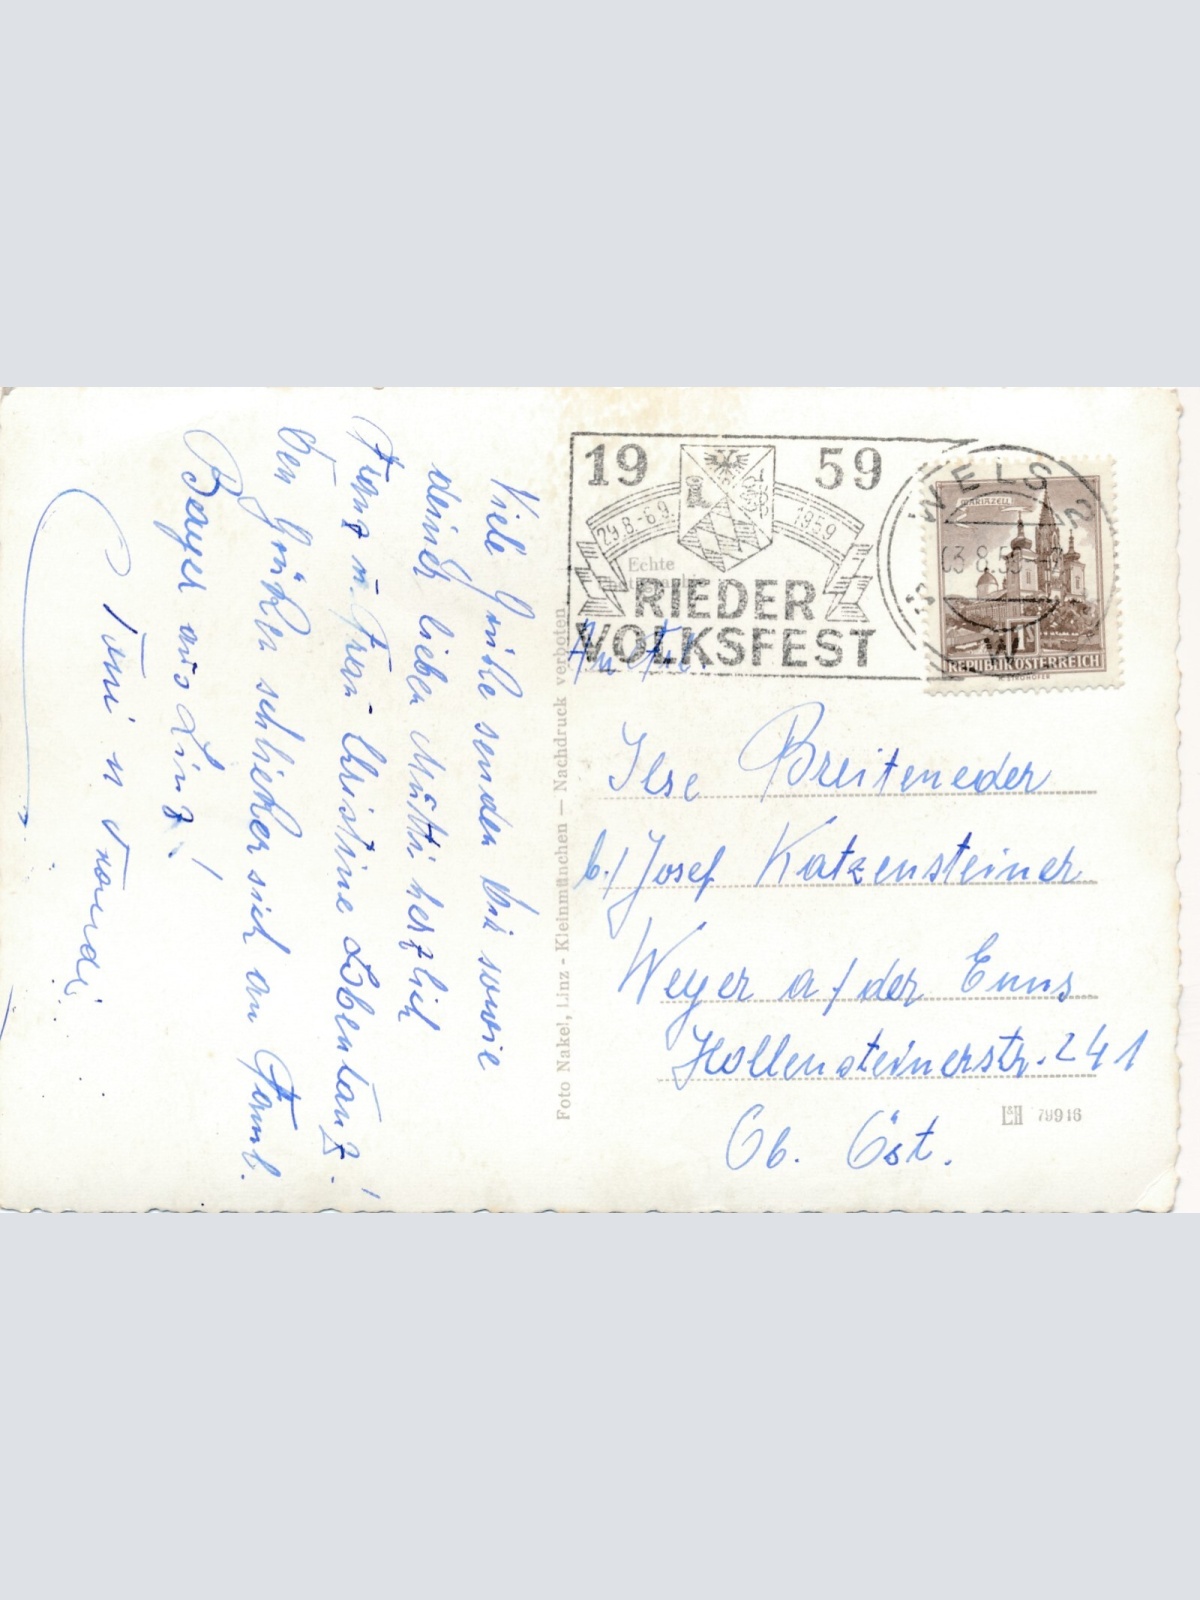 Viele Grüße senden Dir sowie
deiner lieben Mutti herzlich
Franz u. Frau Christine
Den Grüßen schließen sich an Famb.
Bayer aus Linz!
Toni u Traudi
Foto Nakel, Linz - Kleinmünchen — Nachdruck verboten
19 59
29.8.-6.9. 1959
Echte
RIEDER
VOLKSFEST
WELS 2
MARIAZELL
1S
REPUBLIK ÖSTERREICH
An Frl.
Ilse Breiteneder
b./Josef Katzensteiner
Weyer a/der Enns
Hollensteinerstr. 241
L&H 79916
Ob. Öst.